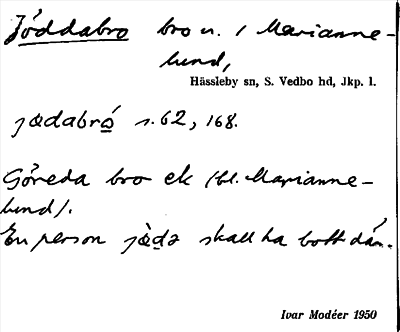 Jöddabro bro n. i Marianne-
lund,
Hässleby sn, S. Vedbo hd, Jkp. l.
s. 62, 168.
Göreda bro ek (bl. Marianne-
lund).
En person skall ha bott där.
Ivar Modéer 1950